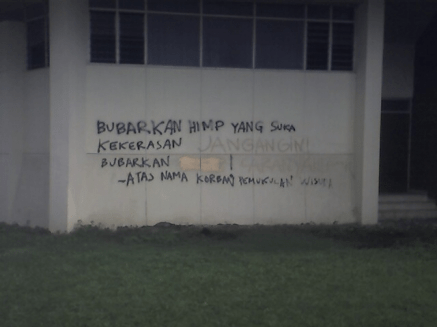 BUBARKAN HIMP YANG SUKA
KEKERASAN JANGANGIN!
BUBARKAN !
-ATAS NAMA KORBAN PEMUKULAN